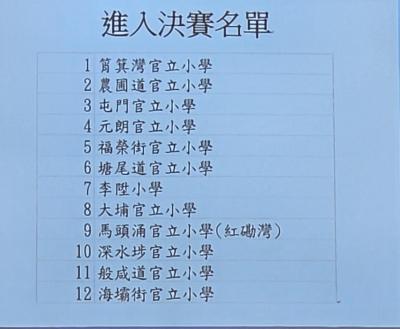 進入決賽名單
1 筲箕灣官立小學
2 農圃道官立小學
3 屯門官立小學
4 元朗官立小學
5 福榮街官立小學
6 塘尾道官立小學
7 李陞小學
8 大埔官立小學
9 馬頭涌官立小學(紅磡灣)
10 深水埗官立小學
11 般咸道官立小學
12 海壩街官立小學